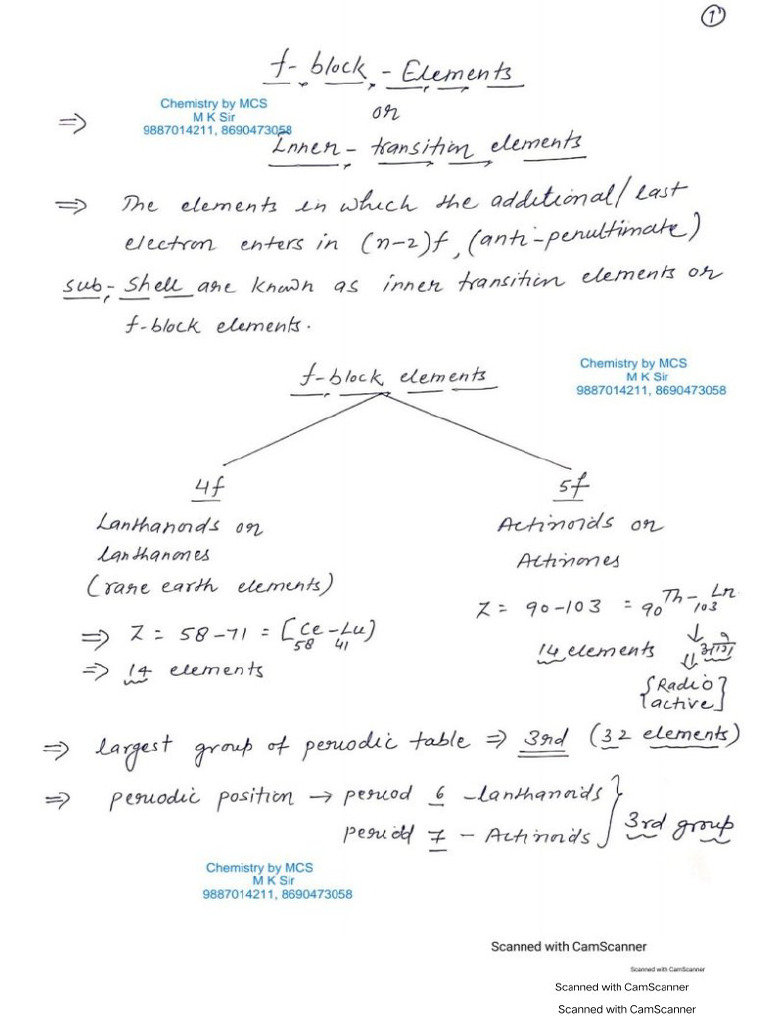 1
f-block-Elements
Chemistry by MCS
M K Sir
9887014211, 8690473058
⇒ or
Inner-transition elements
⇒ The elements in which the additional/last
electron enters in (n-2)f, (anti-penultimate)
sub-shell are known as inner transition elements or
f-block elements.
Chemistry by MCS
M K Sir
9887014211, 8690473058
f-block elements
4f
Lanthanoids or
lanthanones
(rare earth elements)
⇒ Z = 58-71 = [Ce-Lu)
58 41
⇒ 14 elements
5f
Actinoids or
Actinones
Z = 90-103 = 90Th-103Lr
14 elements
{Radio
active}
⇒ largest group of periodic table ⇒ 3rd (32 elements)
⇒ periodic position → period 6 - lanthanoids }
period 7 - Actinoids } 3rd group
Chemistry by MCS
M K Sir
9887014211, 8690473058
Scanned with CamScanner
Scanned with CamScanner
Scanned with CamScanner
Scanned with CamScanner